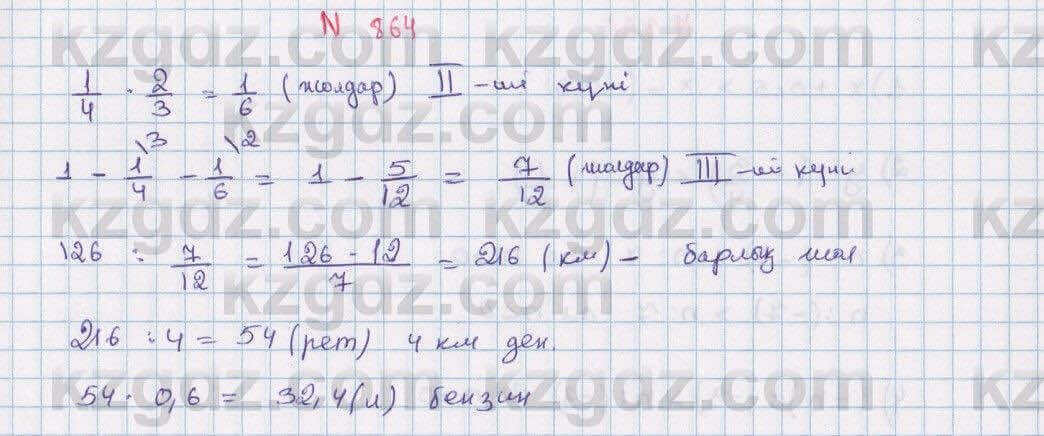 N 864
1/4 · 2/3 = 1/6 (жолдар) II -ші күні
1 - 1/4 \3 - 1/6 \2 = 1 - 5/12 = 7/12 (жолдар) III -ші күні
126 : 7/12 = 126 - 12/7 = 216 (км) - барлық жол
216 : 4 = 54 (рет) 4 км ден.
54 · 0,6 = 32,4 (л) бензин
kzgdz.com